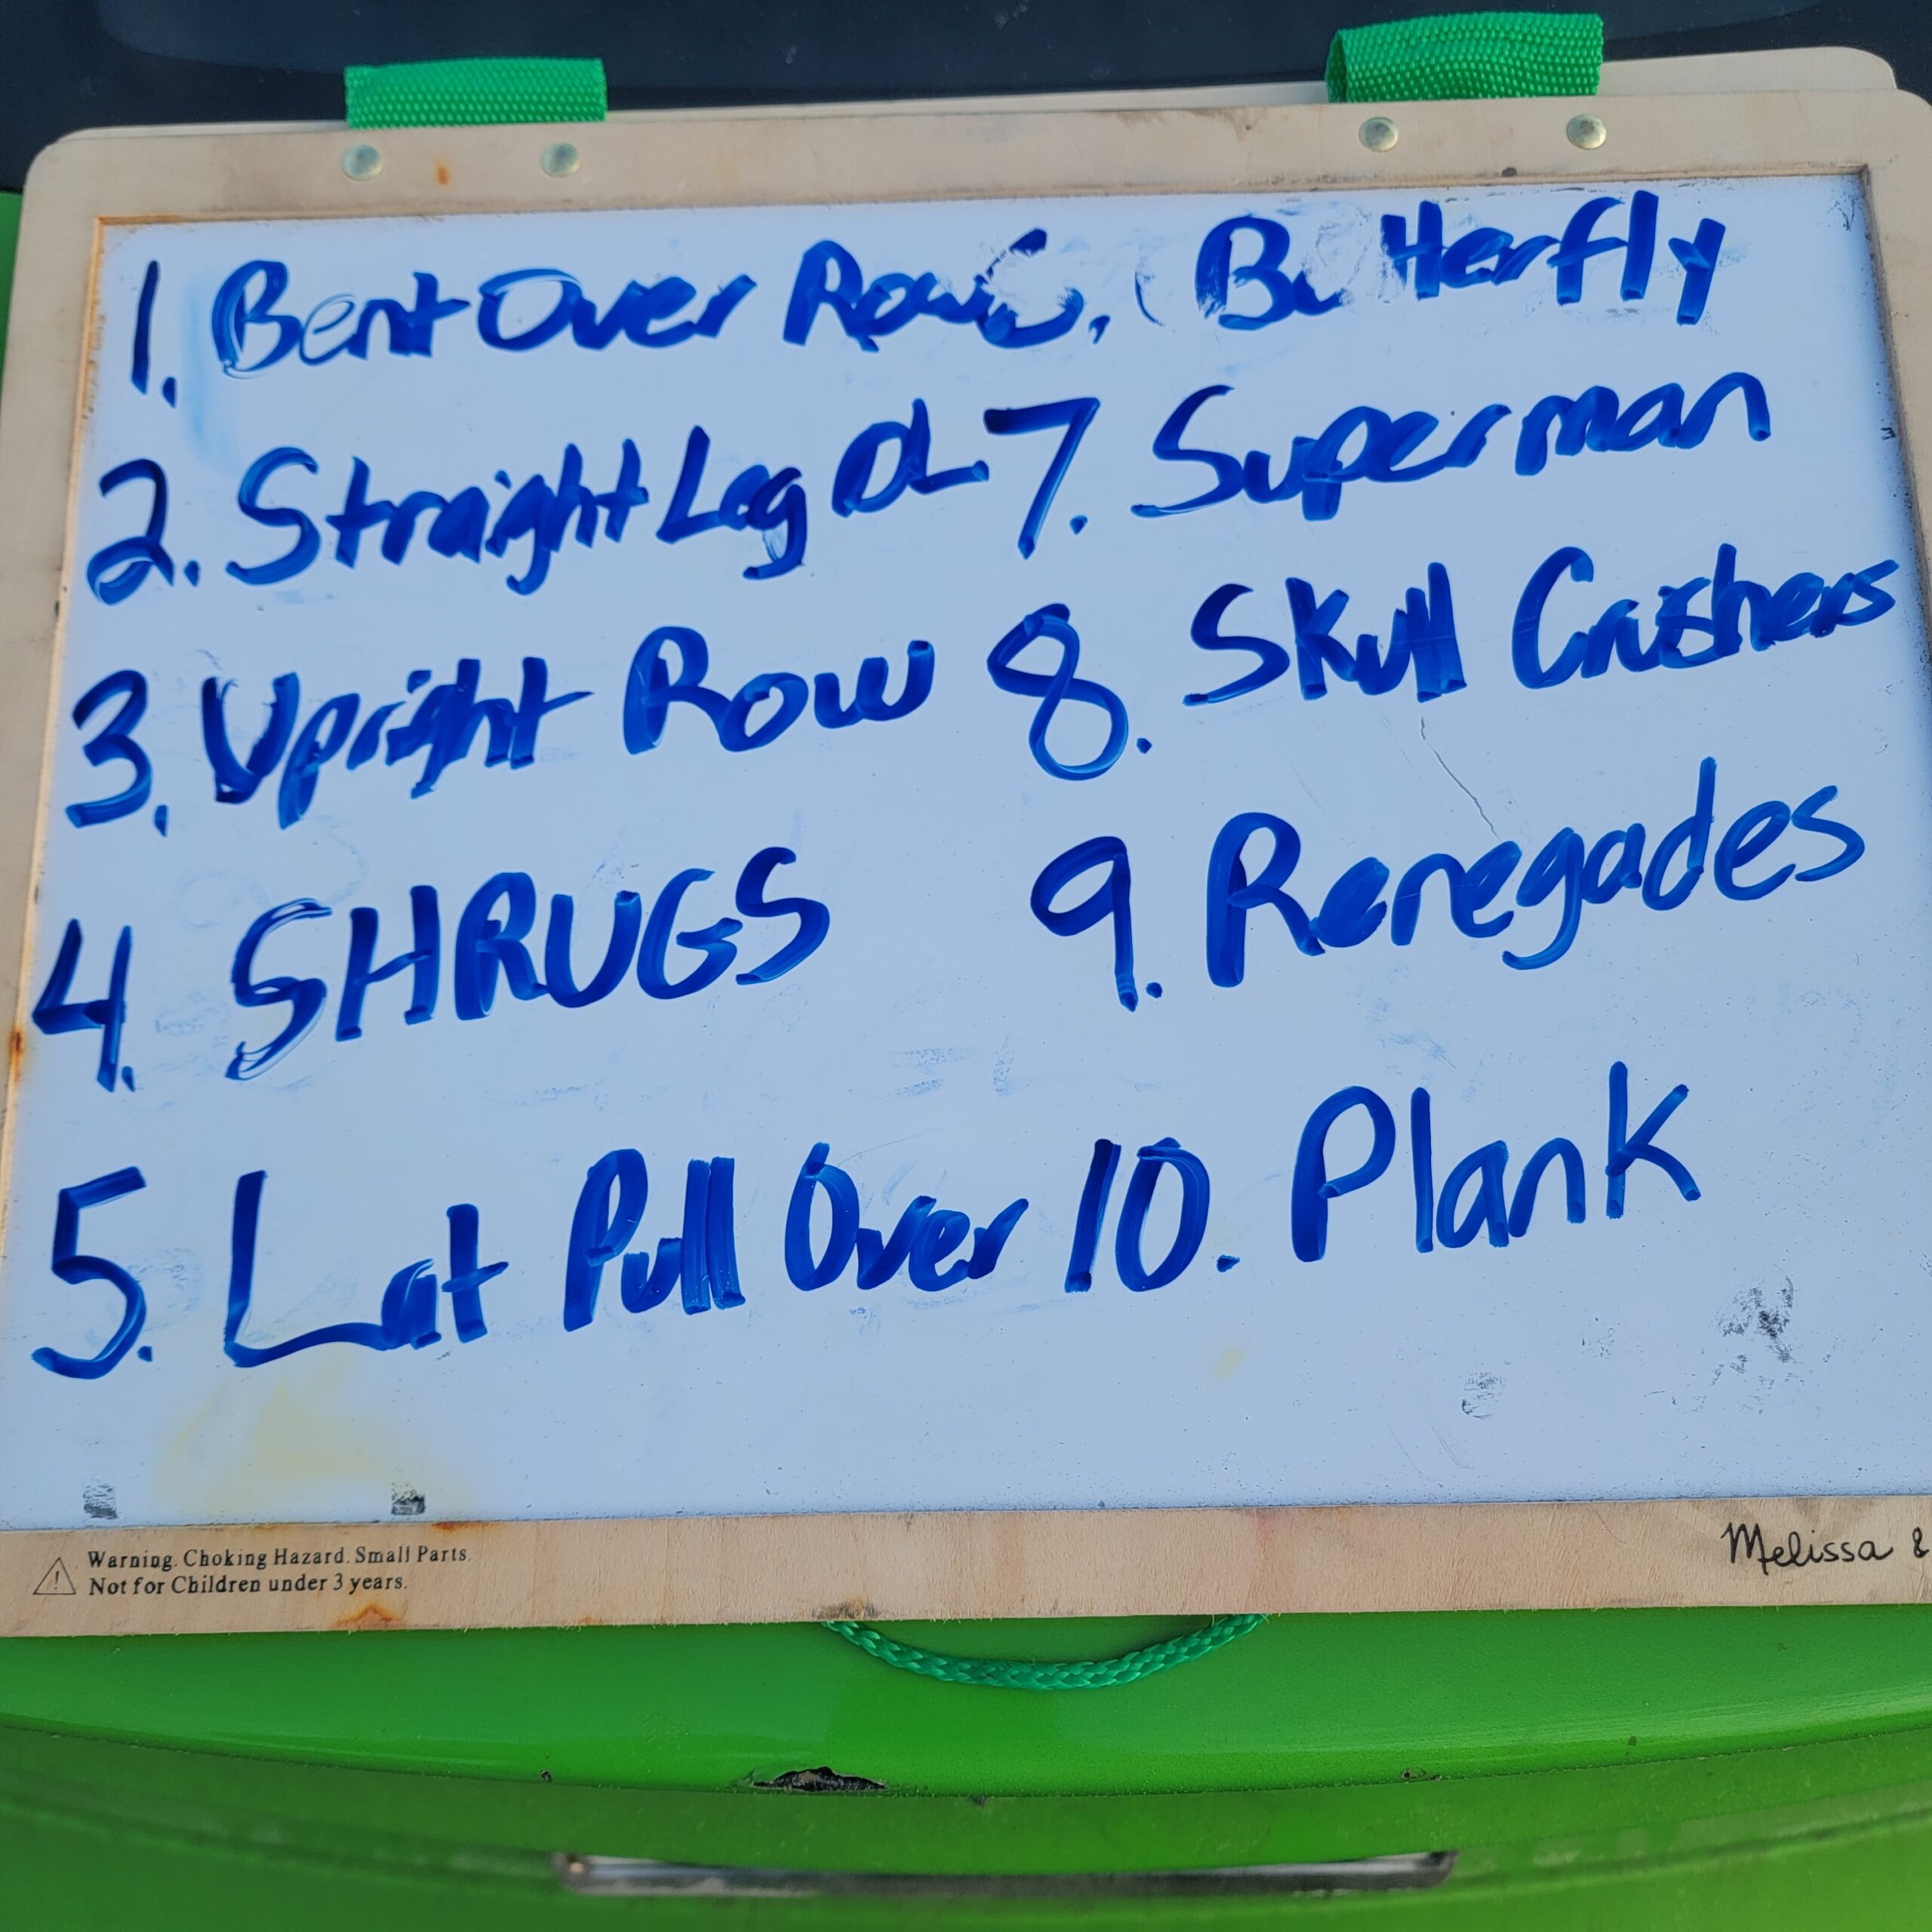 1. Bent Over Row 6. Butterfly
2. Straight Leg DL 7. Superman
3. Upright Row 8. Skull Crushers
4. SHRUGS 9. Renegades
5. Lat Pull Over 10. Plank
Warning. Choking Hazard. Small Parts.
Not for Children under 3 years.
Melissa &